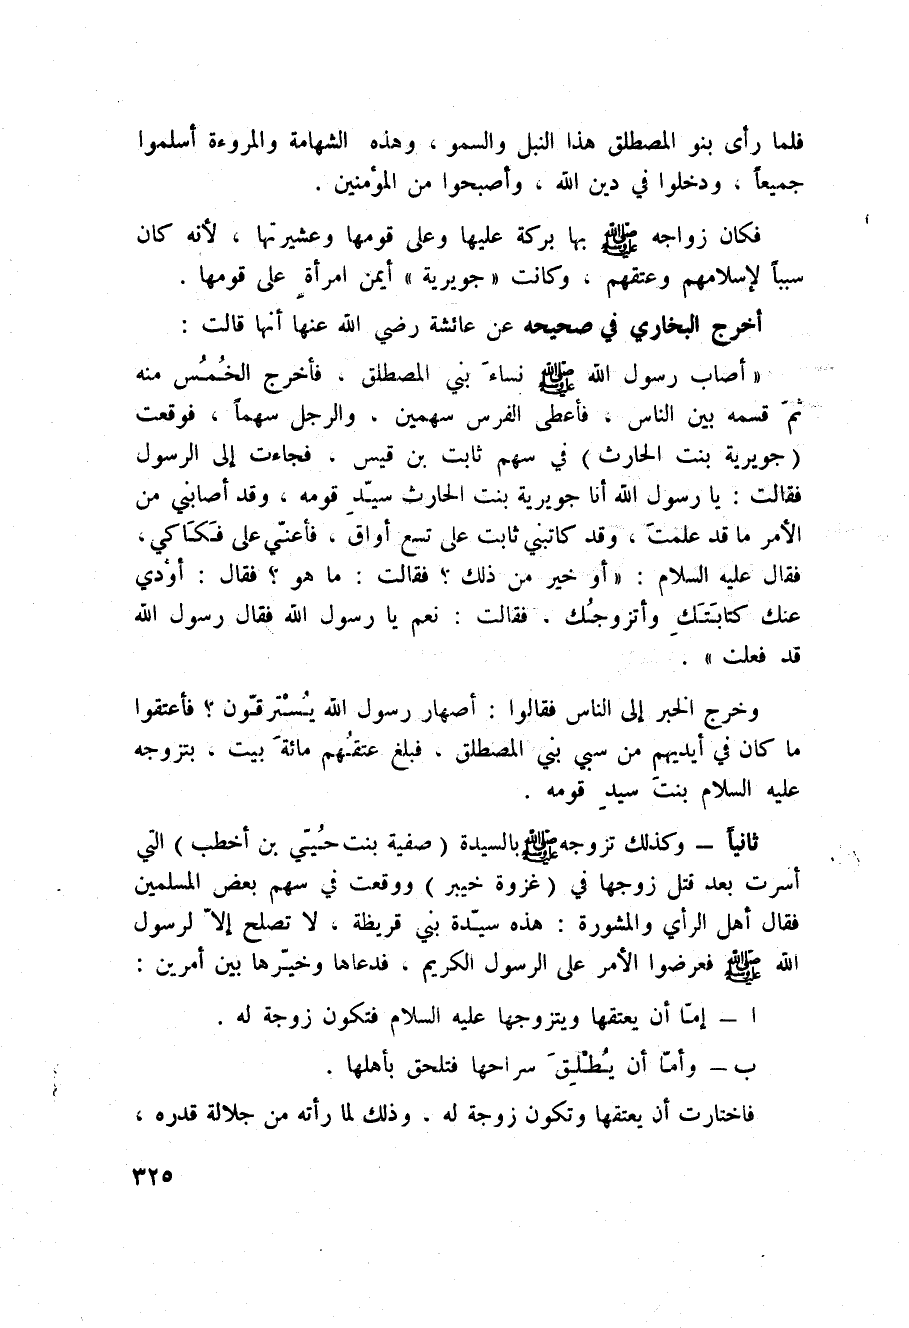 فلما رأى بنو المصطلق هذا النبل والسمو ، وهذه الشهامة والمروءة أسلموا
جميعاً ، ودخلوا في دين الله ، وأصبحوا من المؤمنين .
فكان زواجه ﷺ بها بركة عليها وعلى قومها وعشيرتها ، لأنه كان
سبباً لإسلامهم وعتقهم ، وكانت « جويرية » أيمن امرأةٍ على قومها .
أخرج البخاري في صحيحه عن عائشة رضي الله عنها أنها قالت :
« أصاب رسول الله ﷺ نساءَ بني المصطلق ، فأخرج الخُمُس منه
ثمّ قسمه بين الناس ، فأعطى الفرس سهمين ، والرجل سهماً ، فوقعت
( جويرية بنت الحارث ) في سهم ثابت بن قيس ، فجاءت إلى الرسول
فقالت : يا رسول الله أنا جويرية بنت الحارث سيّدِ قومه ، وقد أصابني من
الأمر ما قد علمتَ ، وقد كاتبني ثابت على تسع أواق ، فأعنّي على فَكَاكي ،
فقال عليه السلام : « أو خير من ذلك ؟ فقالت : ما هو ؟ فقال : أؤدي
عنك كتابَتَكِ وأتزوجُك . فقالت : نعم يا رسول الله فقال رسول الله
قد فعلت » .
وخرج الخبر إلى الناس فقالوا : أصهار رسول الله يُسْترقّون ؟ فأعتقوا
ما كان في أيديهم من سبي بني المصطلق ، فبلغ عتقُهم مائةَ بيت ، بتزوجه
عليه السلام بنتَ سيدِ قومه .
ثانياً – وكذلك تزوجه ﷺ بالسيدة ( صفية بنت حُيَيّ بن أخطب ) التي
أسرت بعد قتل زوجها في ( غزوة خيبر ) ووقعت في سهم بعض المسلمين
فقال أهل الرأي والمشورة : هذه سيّدة بني قريظة ، لا تصلح إلاّ لرسول
الله ﷺ فعرضوا الأمر على الرسول الكريم ، فدعاها وخيّرها بين أمرين :
ا – إمّا أن يعتقها ويتزوجها عليه السلام فتكون زوجة له .
ب – وأمّا أن يُطْلِقَ سراحها فتلحق بأهلها .
فاختارت أن يعتقها وتكون زوجة له . وذلك لما رأته من جلالة قدره ،
٣٢٥